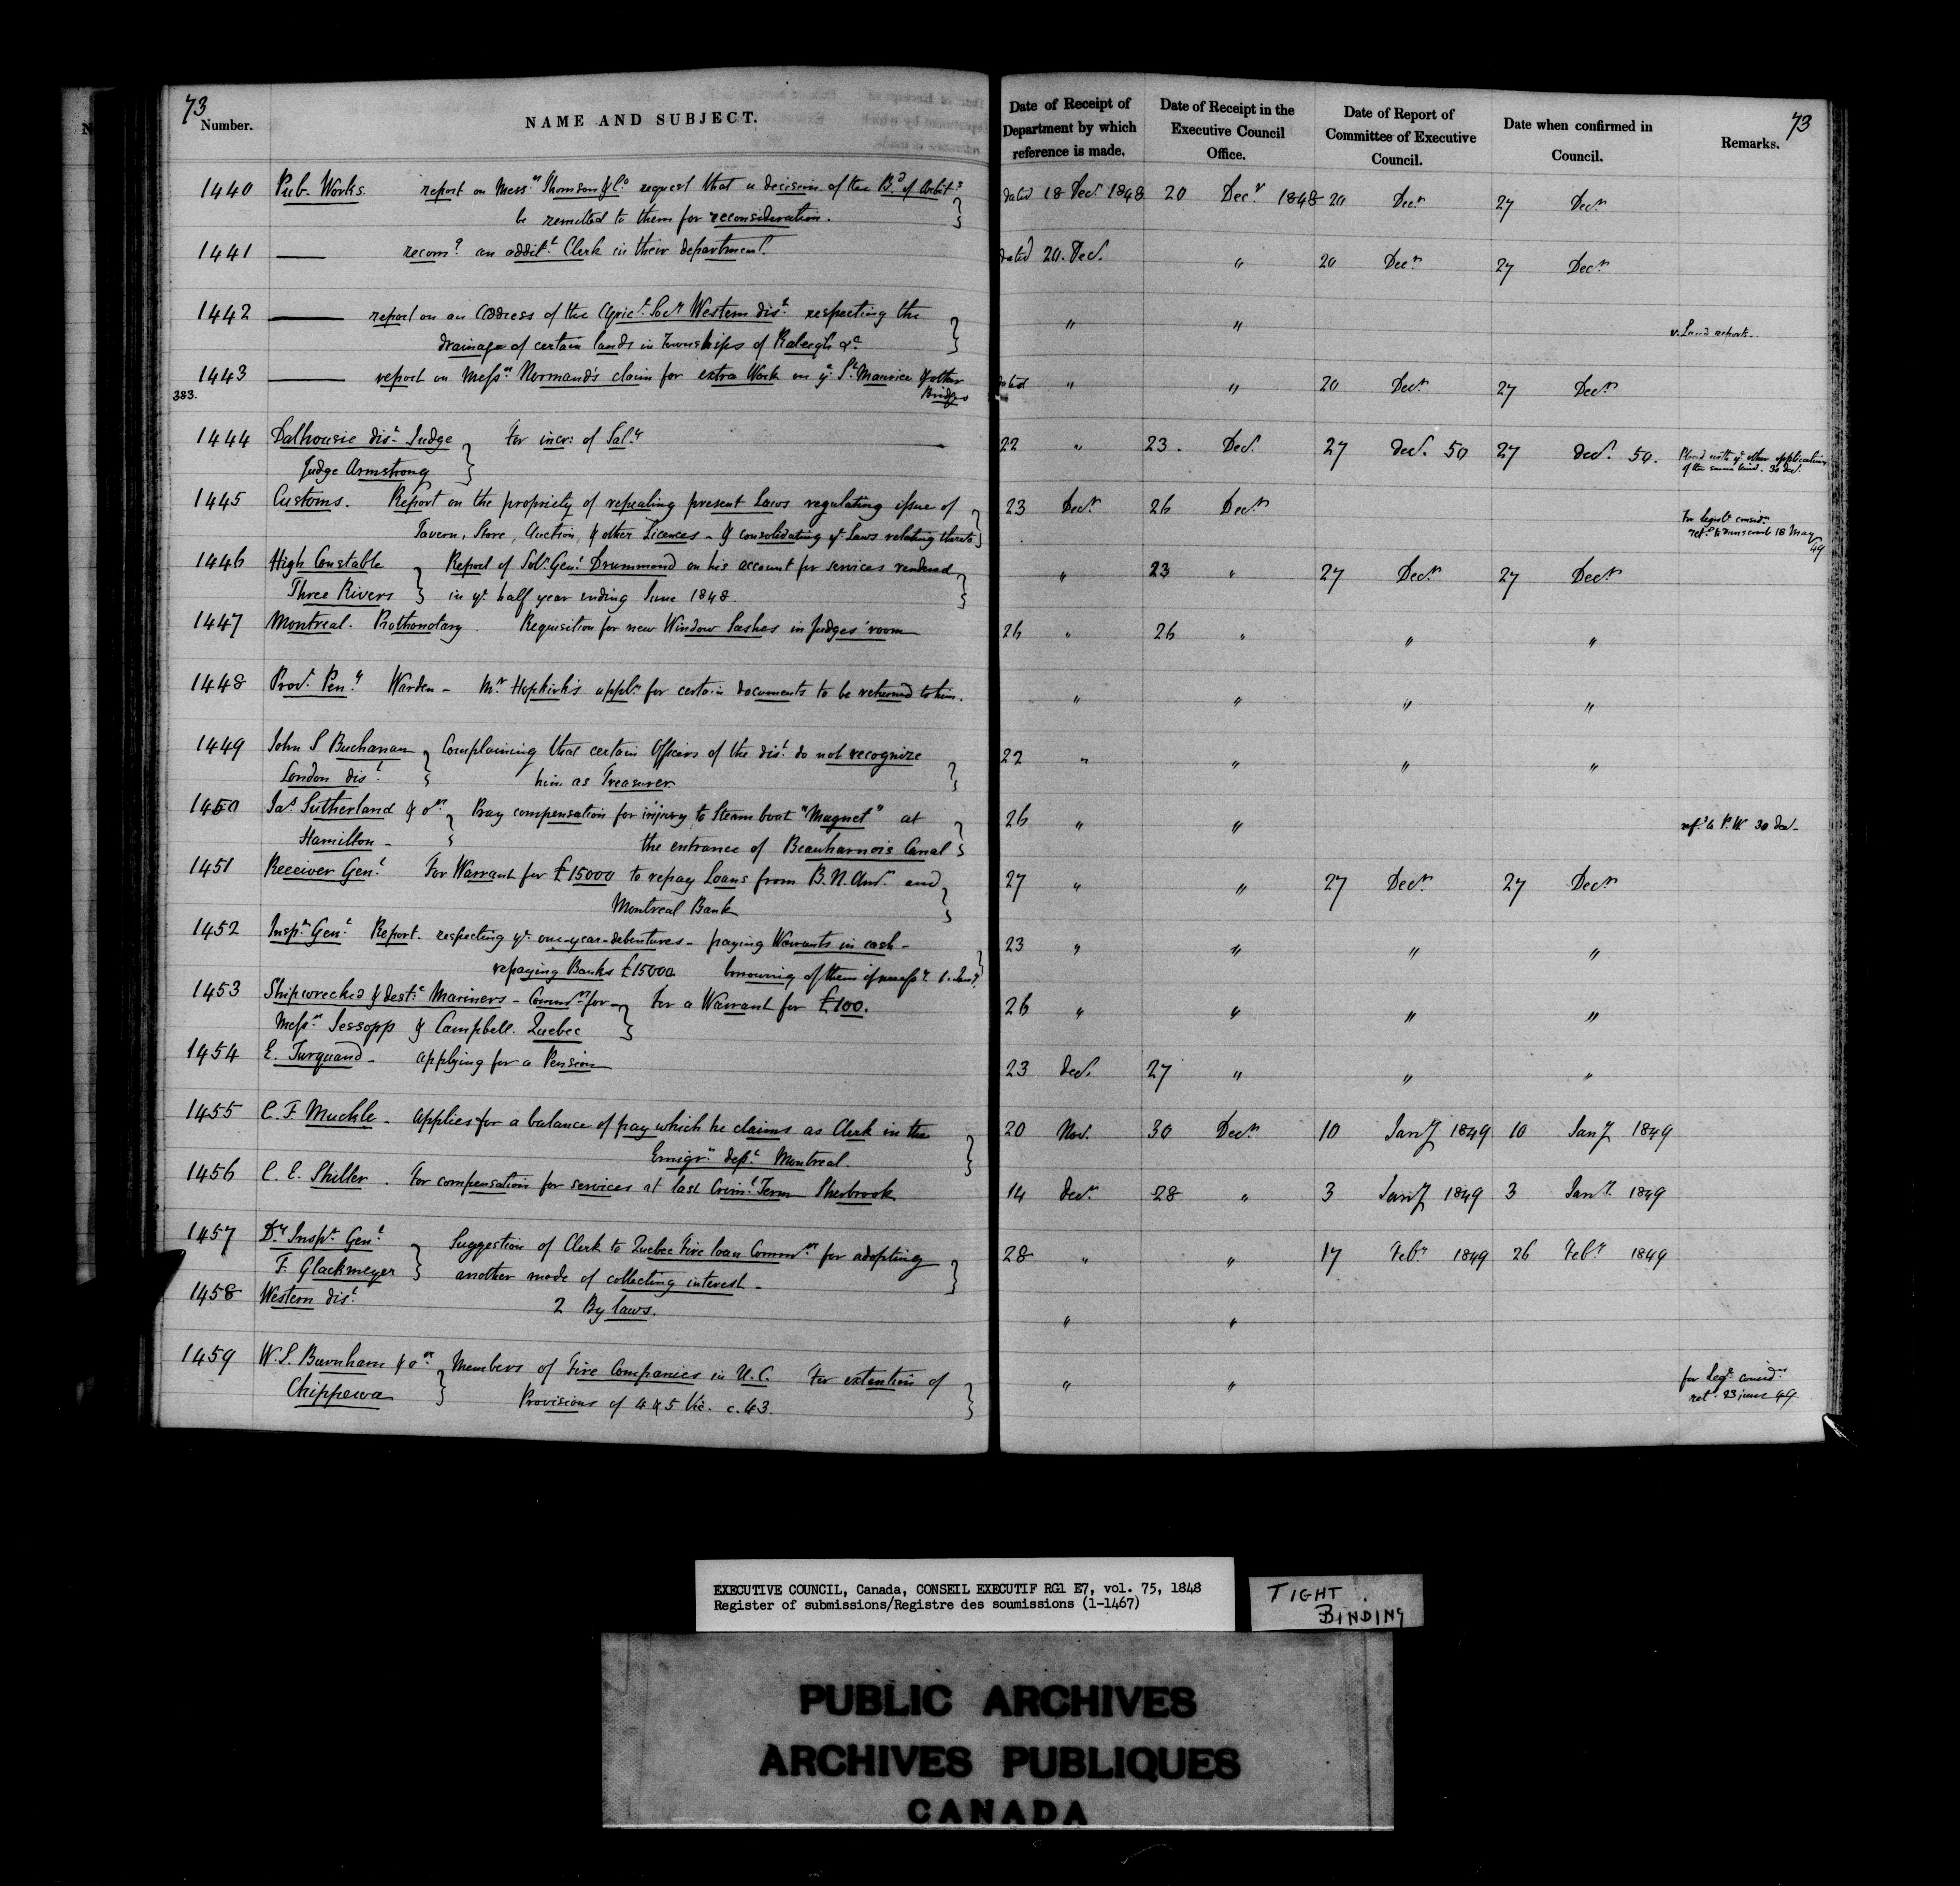 73
Number.
NAME AND SUBJECT.
Date of Receipt of Department by which reference is made.
Date of Receipt in the Executive Council Office.
Date of Report of Committee of Executive Council.
Date when confirmed in Council.
Remarks.
73
1440 Pub. Works. report on Messrs Thomson & Co request that a decision of the Bd of Arbits } dated 18 Decr 1848 20 Decr 1848 20 Decr 27 Decr
be remitted to them for reconsideration.
1441 —— recomg an additl Clerk in their department. dated 20. Decr " 20 Decr 27 Decr
1442 —— report on an address of the Agricl Socy Western dist respecting the } " " v. Land report.
drainage of certain lands in Townships of Raleigh &c
1443 —— report on Messrs Normand's claim for extra Work on ye St Maurice & other dated " " 20 Decr 27 Decr
383. Bridges
1444 Dalhousie dist Judge } For incr: of Saly —— 22 " 23. Decr 27 Decr 50 27 Decr 50. Placed with ye other applications
Judge Armstrong of the same kind. 30 Decr
1445 Customs. Report on the propriety of repealing present Laws regulating issue of } 23 Decr 26 Decr
Tavern, Store, Auction, & other Licences - & consolidating ye Laws relating thereto For Legisl. considn
18 May 49
1446 High Constable } Report of Solr Genl Drummond on his account for services rendered } " 23 " 27 Decr 27 Decr
Three Rivers in ye half year ending June 1848.
1447 Montreal. Prothonotary. Requisition for new Window Sashes in Judges' room 26 " 26 " " "
1448 Provl Peny Warden - Mr Hopkirk's appln for certain documents to be returned to him. " " " "
1449 John S Buchanan } Complaining that certain Officers of the dist do not recognize } 22 " " " "
London dist him as Treasurer
1450 Jas Sutherland & ors } Pray compensation for injury to Steam boat "Magnet" at } 26 " " refd to P. W. 30 Decr
Hamilton - the entrance of Beauharnois Canal
1451 Receiver Genl For Warrant for £15000 to repay Loans from B. N. Amn and } 27 " " 27 Decr 27 Decr
Montreal Bank
1452 Inspr Genl Report. respecting ye one-year-debentures - paying Warrants in cash - } 23 " " " "
repaying Banks £15000. borrowing of them if necessy 1. Jany
1453 Shipwrecked & destte Mariners - Commrs for } For a Warrant for £100. 26 " " " "
Messrs Jessopp & Campbell. Quebec
1454 E. Turquand - applying for a Pension 23 Decr 27 " " "
1455 C. F. Muckle - applies for a balance of pay which he claims as Clerk in the } 20 Nov. 30 Decr 10 Jany 1849 10 Jany 1849
Emigrn dept Montreal.
1456 C. E. Shiller. For compensation for services at last Criml Term Sherbrook 14 Decr 28 " 3 Jany 1849 3 Jany 1849
1457 Dy Inspr Genl } Suggestion of Clerk to Quebec Fire loan Commrs for adopting } 28 " " 17 Feby 1849 26 Feby 1849
F. Glackmeyer another mode of collecting interest -
1458 Western dist 2 By laws. " "
1459 W. S. Burnham & ors } Members of Fire Companies in U. C. For extention of } " " for Legve considn
Chippewa Provisions of 4 & 5 Vic. c. 43. ret. 23 june 49
EXECUTIVE COUNCIL, Canada, CONSEIL EXECUTIF RG1 E7, vol. 75, 1848
Register of submissions/Registre des soumissions (1-1467)
TIGHT BINDING
PUBLIC ARCHIVES
ARCHIVES PUBLIQUES
CANADA